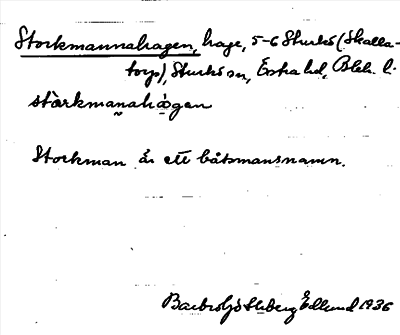 Storkmannahagen, hage, 5-6 Sturkö (Skalla-
torp), Sturkö sn, Östra hd, Blek. l.
stàrkmanahá̱gen
Storkman är ett båtsmansnamn.
Edlund 1936